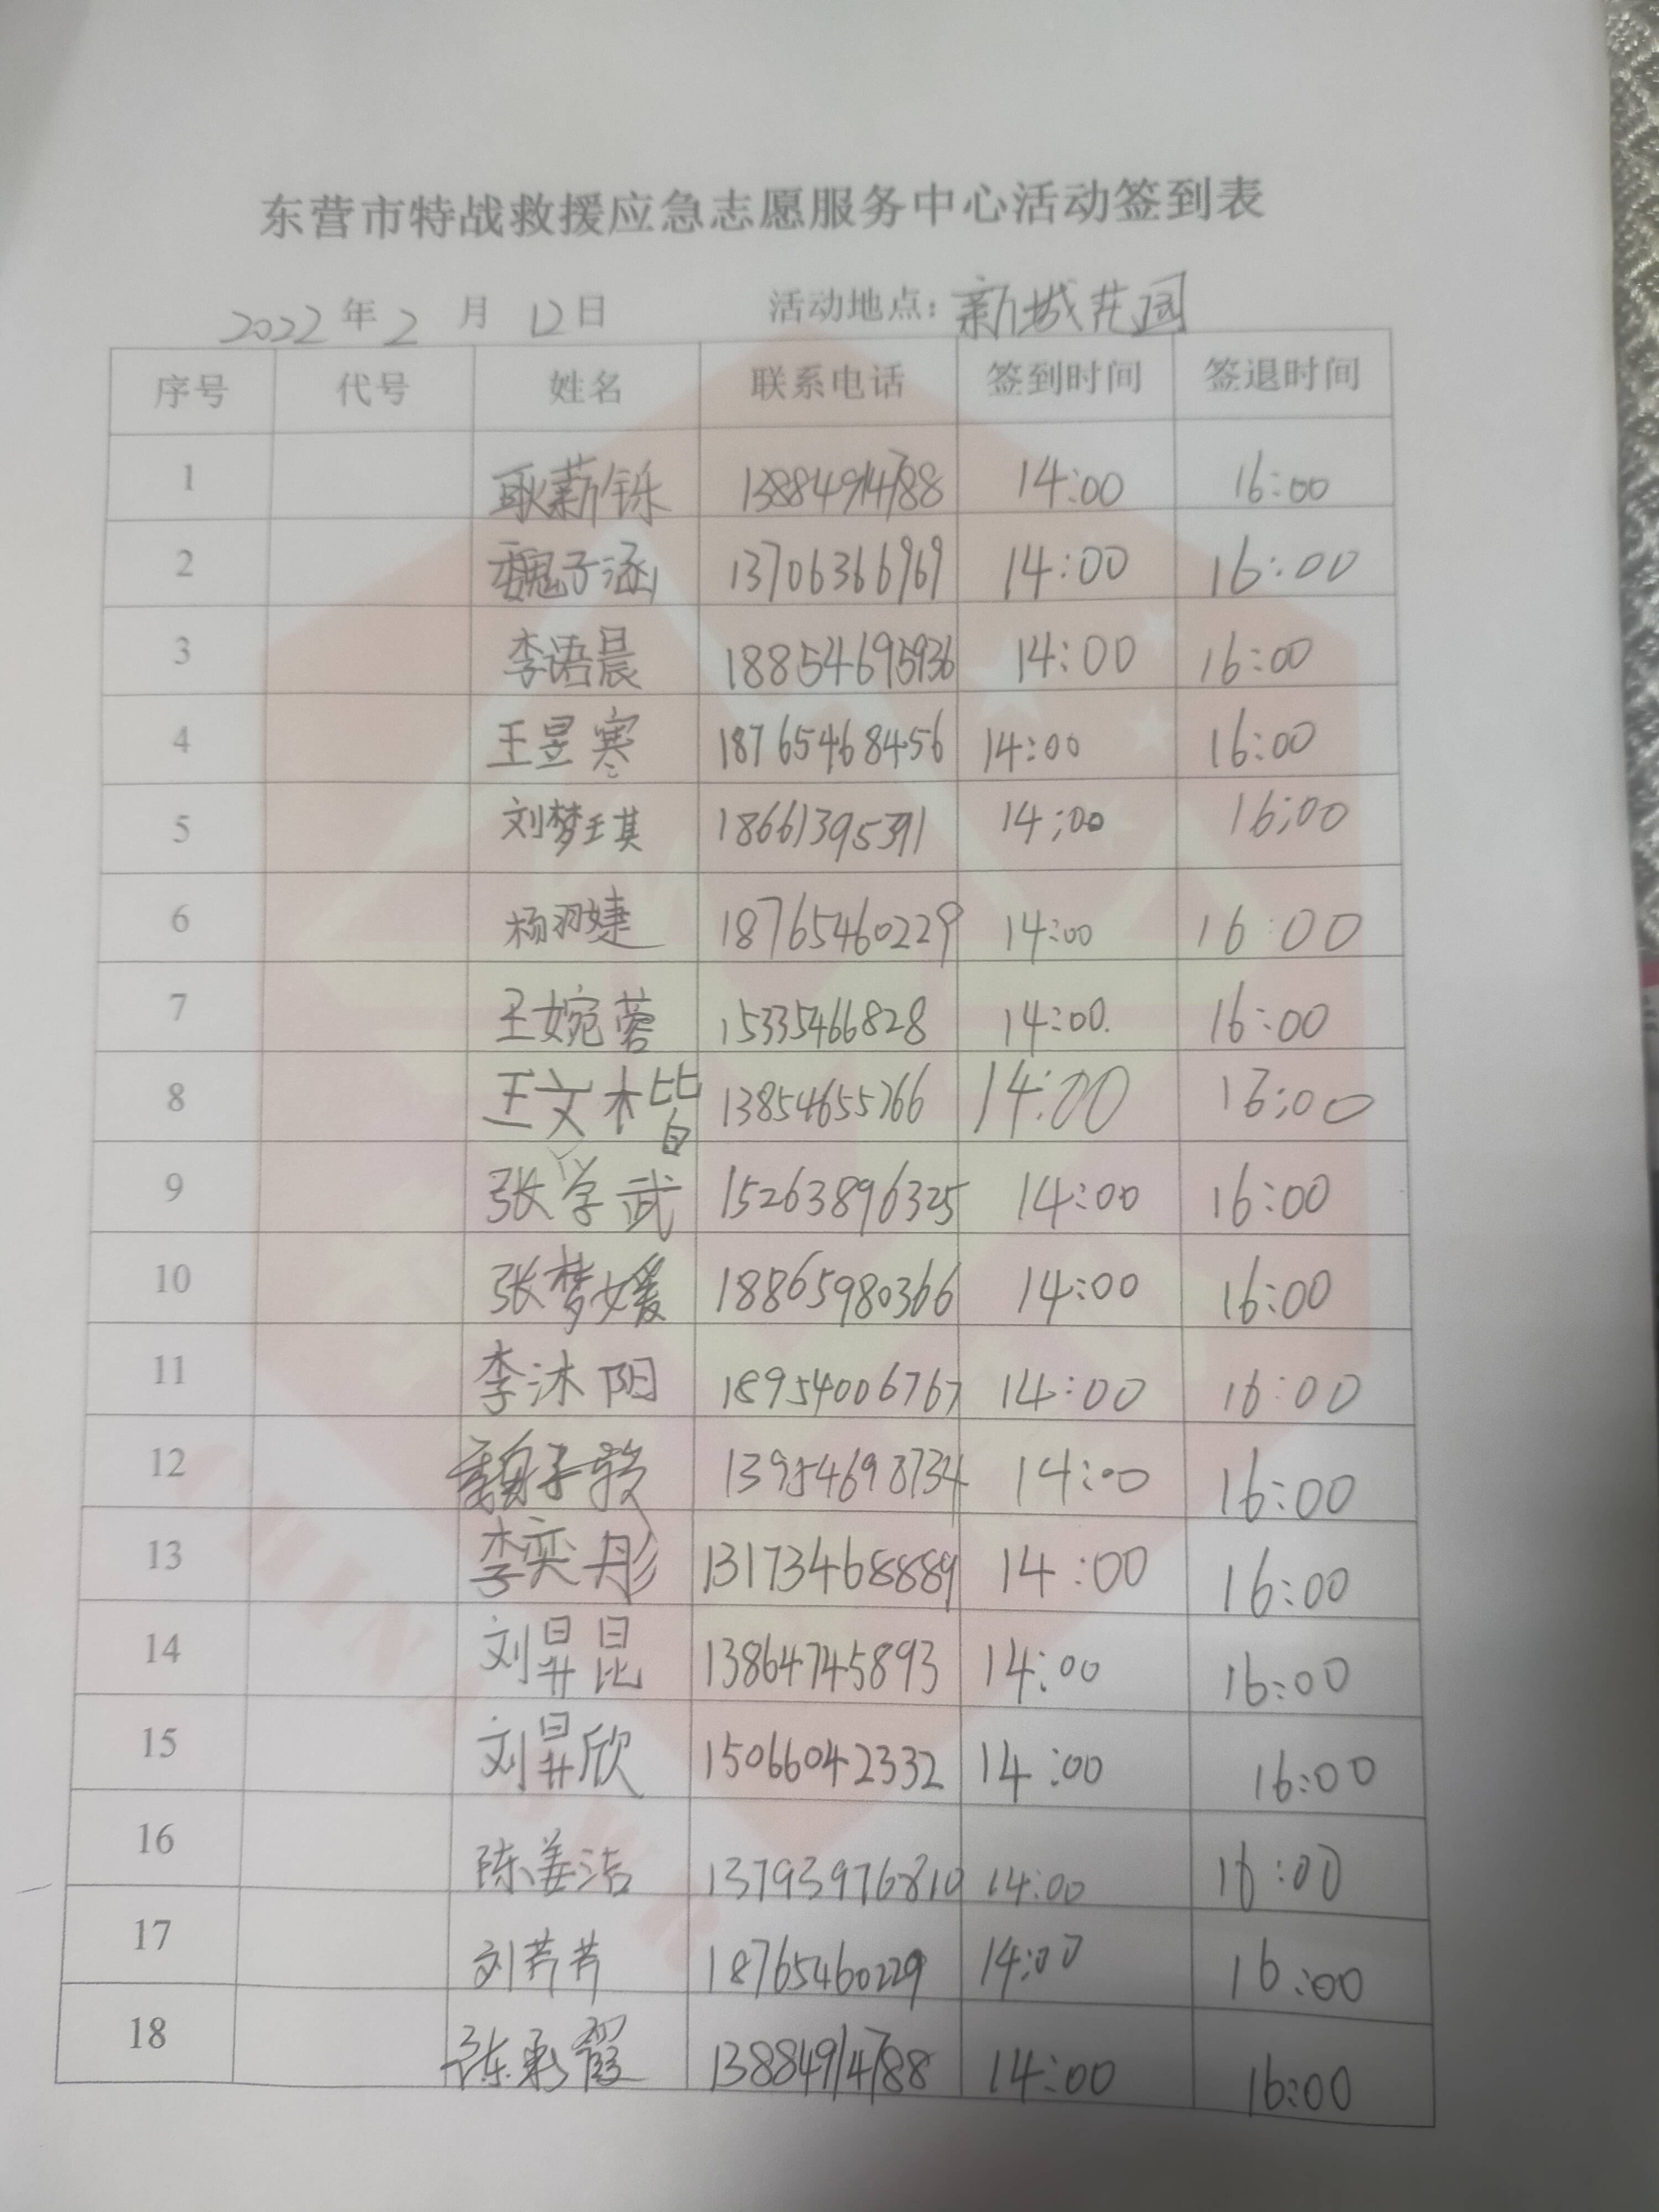 东营市特战救援应急志愿服务中心活动签到表
2022年2月12日 活动地点：新城花园
序号 代号 姓名 联系电话 签到时间 签退时间
1 耿薪铄 13884914788 14:00 16:00
2 魏子涵 13706366969 14:00 16:00
3 李语晨 18854695936 14:00 16:00
4 王昱寒 18765468456 14:00 16:00
5 刘梦琪 18661395391 14:00 16:00
6 杨羽婕 18765460229 14:00 16:00
7 王婉蓉 15335466828 14:00 16:00
8 王文楷 13854655766 14:00 16:00
9 张学武 15263896325 14:00 16:00
10 张梦媛 18865980366 14:00 16:00
11 李沐阳 18954006767 14:00 16:00
12 魏子 13954698734 14:00 16:00
13 李奕彤 13173468889 14:00 16:00
14 刘昇昆 13864745893 14:00 16:00
15 刘昇欣 15066042332 14:00 16:00
16 陈姜洁 13793976810 14:00 16:00
17 刘芹芹 18765460229 14:00 16:00
18 陈霞 13884914788 14:00 16:00
CHINA